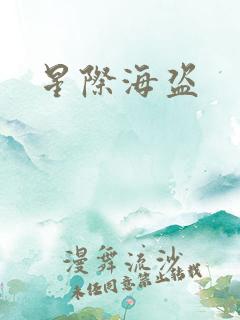 星際海盗
漫舞流沙
未经同意禁止转载